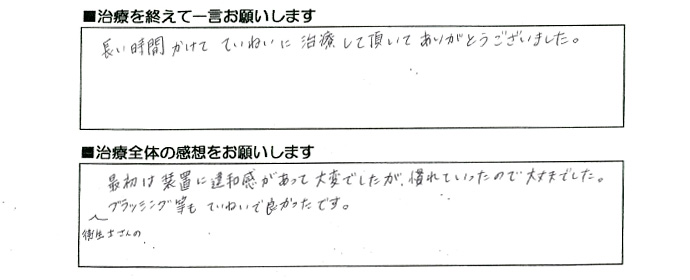 ■治療を終えて一言お願いします
長い時間かけて ていねいに 治療して頂いて ありがとうございました。
■治療全体の感想をお願いします
最初は装置に違和感があって大変でしたが、慣れていったので大丈夫でした。
ブラッシング等も ていねいで良かったです。
衛生士さんの